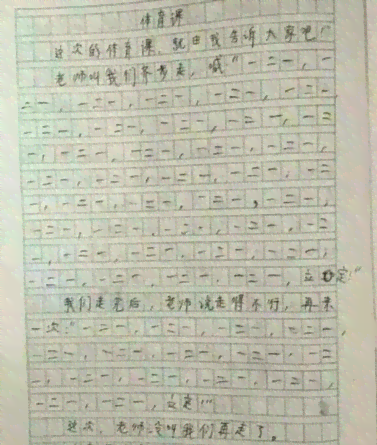 体育课
这次的体育课,就由我告诉大家吧!
老师叫我们齐步走,喊“一二一,一
二一,一二一,一二一,一二一,一二一,
一二一,一二一,一二一,一二一,一二
一,一二一,一二一,一二一,一二一,
一二一,一二一,一二一,一二一,一二
一,一二一,一二一,一二一,一二一,
一二一,一二一,一二一,一二一,一二
一,一二一,一二一,一二一,一二一,
一二一,一二一,一二一,一二一,立定!”
我们走完后,老师说走得不行,再来
一次:“一二一,一二一,一二一,一二一,
一二一,一二一,一二一,一二一,一二
一,一二一,一二一,一二一,一二一,
一二一,一二一,立定!”
这次,老师没叫我们再走了。